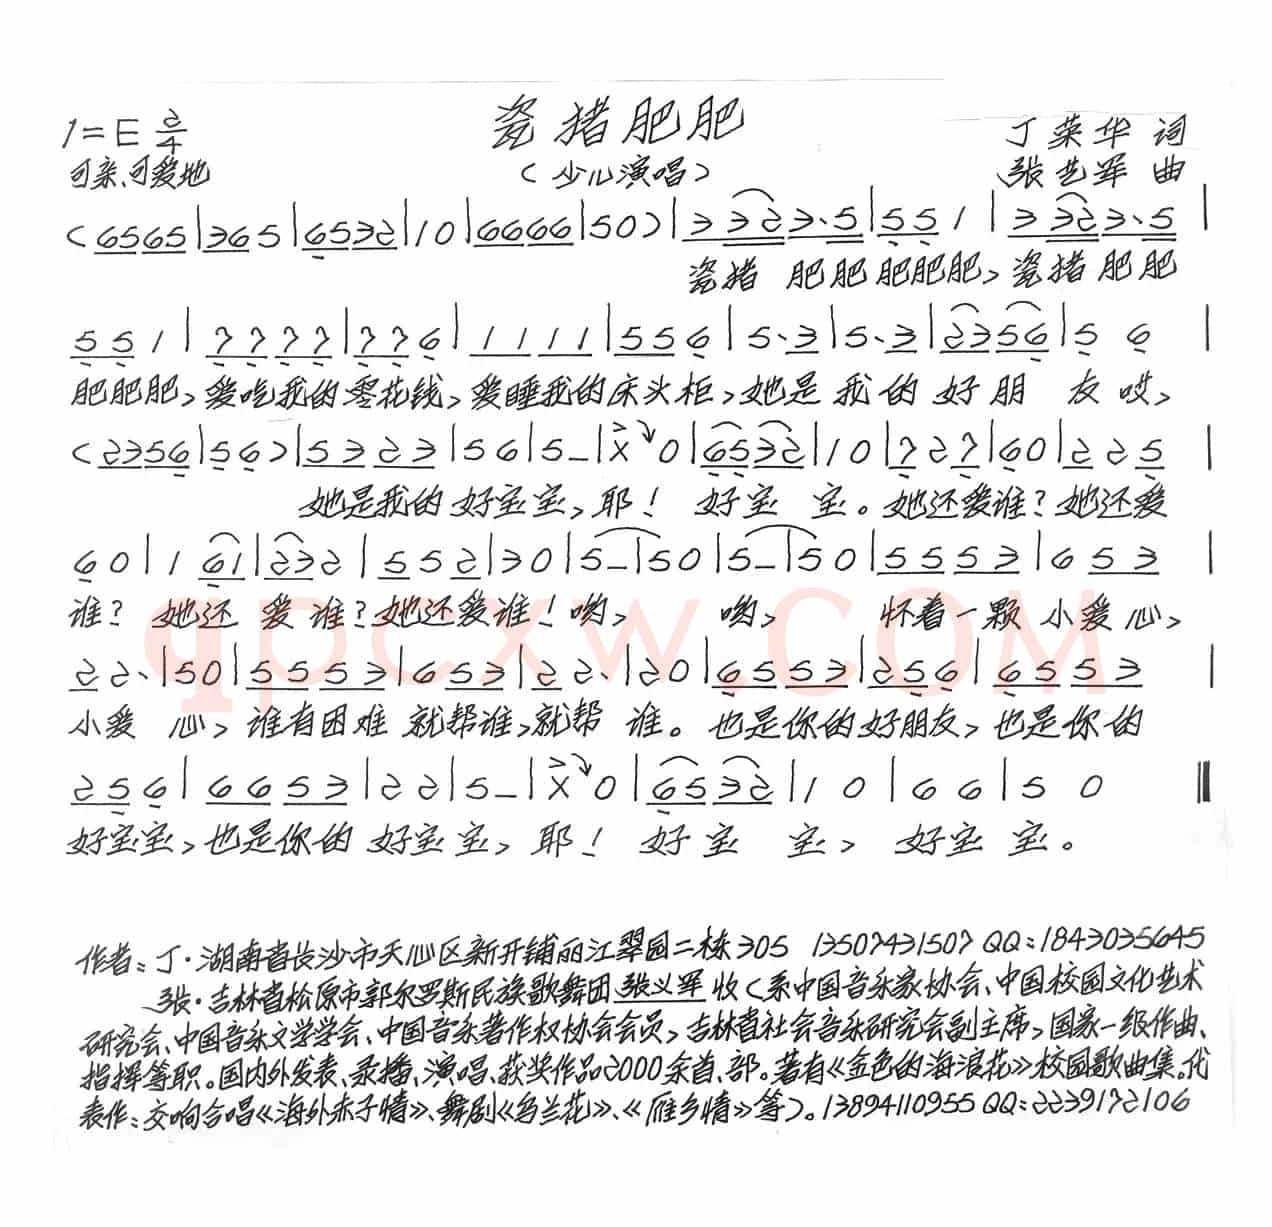 瓷猪肥肥
1=E 2/4
丁荣华 词
可亲、可爱地
(少儿演唱)
张艺军 曲
(6565|365|6532|10|6666|50)|3 323.5|551|3 323.5|
瓷猪 肥肥肥肥肥,瓷猪肥肥
551|7777|776|1111|556|5.3|5.3|2356|5 6|
肥肥肥,爱吃我的零花钱,爱睡我的床头柜,她是我的好朋 友哎,
(2356|56)|5323|56|5-|X 0|6532|10|727|60|225|
她是我的好宝宝,耶! 好宝 宝。她还爱谁?她还爱
60|1 61|232|552|30|5-|50|5-|50|5553|653|
谁? 她还 爱谁?她还爱谁!哟, 哟, 怀着一颗小爱心,
22.|50|5553|653|22.|20|6553|256|6553|
小爱 心,谁有困难就帮谁,就帮 谁。也是你的好朋友,也是你的
256|6653|22|5-|X 0|6532|1 0|66|5 0
好宝宝,也是你的好宝宝,耶! 好宝 宝, 好宝宝。
作者:丁·湖南省长沙市天心区新开铺丽江翠园二栋305 13507431507 QQ:1843035645
张·吉林省松原市郭尔罗斯民族歌舞团张义军收(系中国音乐家协会、中国校园文化艺术
研究会、中国音乐文学学会、中国音乐著作权协会会员,吉林省社会音乐研究会副主席,国家一级作曲、
指挥等职。国内外发表、录播、演唱、获奖作品2000余首、部。著有《金色的海浪花》校园歌曲集。代
表作:交响合唱《海外赤子情》、舞剧《乌兰花》、《雁乡情》等)。13894110955 QQ:2239172106
qpcxw.COM